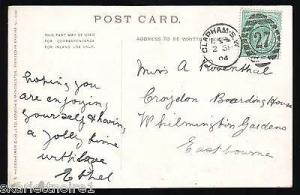 POST CARD.
THIS PART MAY BE USED
FOR CORRESPONDENCE
FOR INLAND USE ONLY.
ADDRESS TO BE WRITTEN
CLAPHAM S.W.
04
27
hoping you
are enjoying
yourself & having
a jolly time
with love
Ethel
Miss A Rosenthal
Croydon Boarding House
Whilmington Gardens
Eastbourne